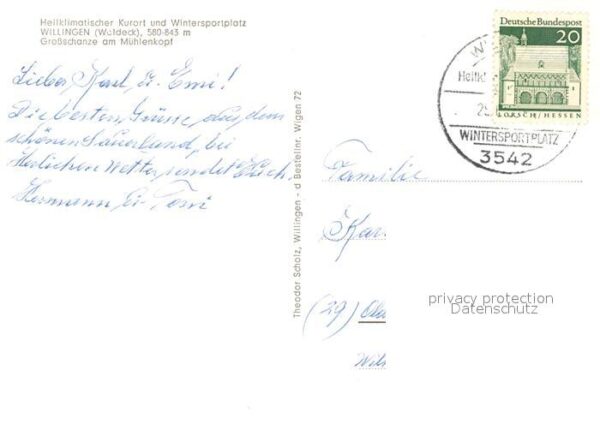 Heilklimatischer Kurort und Wintersportplatz
WILLINGEN (Waldeck), 580-843 m
Großschanze am Mühlenkopf
Lieber Karl u. Emi!
Die besten Grüsse aus dem
schönen Sauerland, bei
Herlichen Wetter sendet Euch
Hermann u. Toni
Theodor Scholz, Willingen - d Bestellnr. Wigen 72
Deutsche Bundespost
20
LORSCH/HESSEN
W
Heilkl
29
WINTERSPORTPLATZ
3542
Familie
Kar
(29)
Wil
privacy protection
Datenschutz